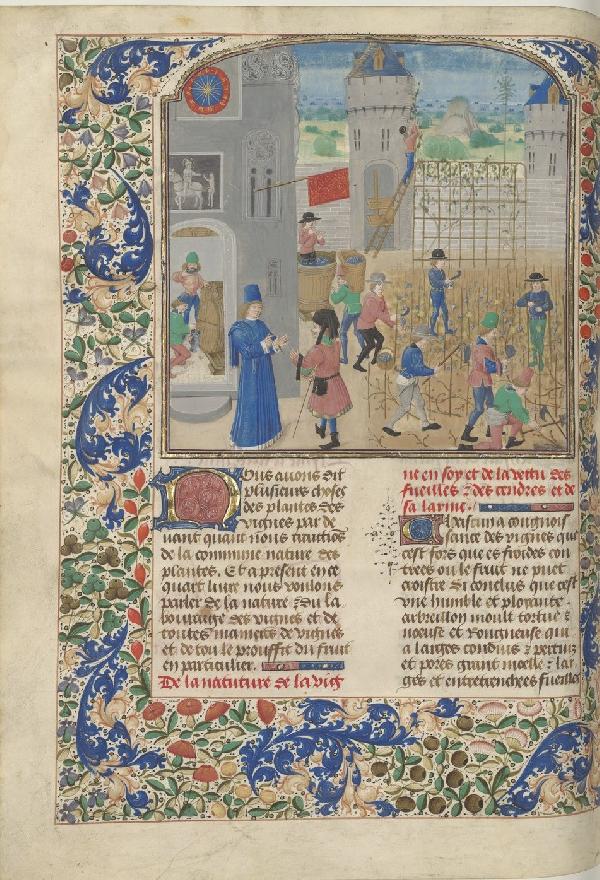 Nous auons dit
plusieurs choses
des plantes des
vignes par de
uant quant nous traictios
de la commune nature des
plantes. Et a present en ce
quart liure nous voulons
parler de la nature & du la
bourage des vignes et de
toutes manieres de vignes
et de tou le prouffit du fruit
en particulier.
De la natuture de la vig
ne en soy et de la vertu des
fueilles & des cendres et de
sa larme.
Chascun a congnois
sance des vignes qui
cest fors que es froides con
trees ou le fruit ne puet
croistre Si conclus que cest
vne humble et ployante
arbreillon moult tortue &
noeuse et rongneuse qui
a larges conduis & pertuis
et pores grant moelle & lar
ges et entretrenchees fueilles